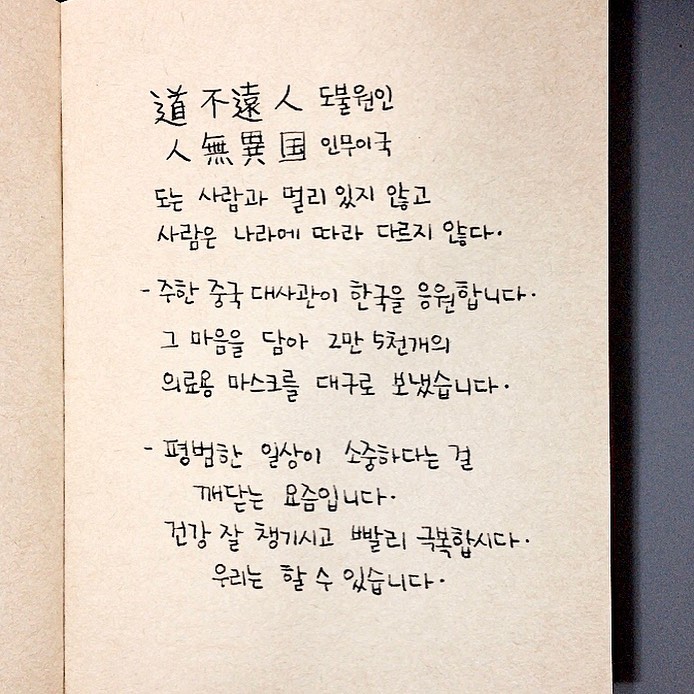 道不遠人 도불원인
人無異国 인무이국
도는 사람과 멀리 있지 않고
사람은 나라에 따라 다르지 않다.
- 주한 중국 대사관이 한국을 응원합니다.
그 마음을 담아 2만 5천개의
의료용 마스크를 대구로 보냈습니다.
- 평범한 일상이 소중하다는 걸
깨닫는 요즘입니다.
건강 잘 챙기시고 빨리 극복합시다.
우리는 할 수 있습니다.